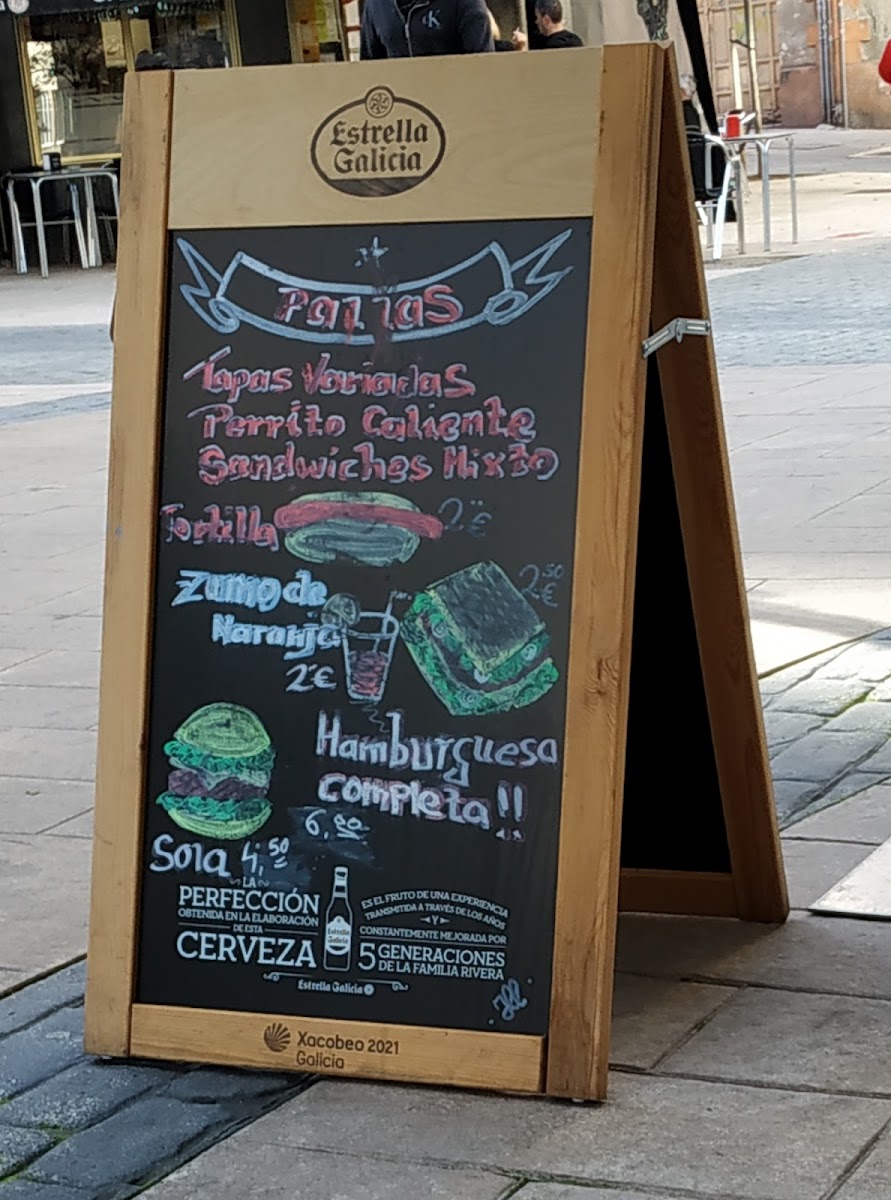 Estrella
Galicia
Tapas Variadas
Perrito Caliente
Sandwiches Mixto
Tortilla
2.¨€
2 50 €
Zumo de
Naranja
2€
Hamburguesa
completa!!
6,80
Sola 4,50
LA
PERFECCIÓN
OBTENIDA EN LA ELABORACIÓN
DE ESTA
CERVEZA
Estrella
Galicia
ES EL FRUTO DE UNA EXPERIENCIA
TRANSMITIDA A TRAVÉS DE LOS AÑOS
Y
CONSTANTEMENTE MEJORADA POR
5 GENERACIONES
DE LA FAMILIA RIVERA
Estrella Galicia
Xacobeo 2021
Galicia